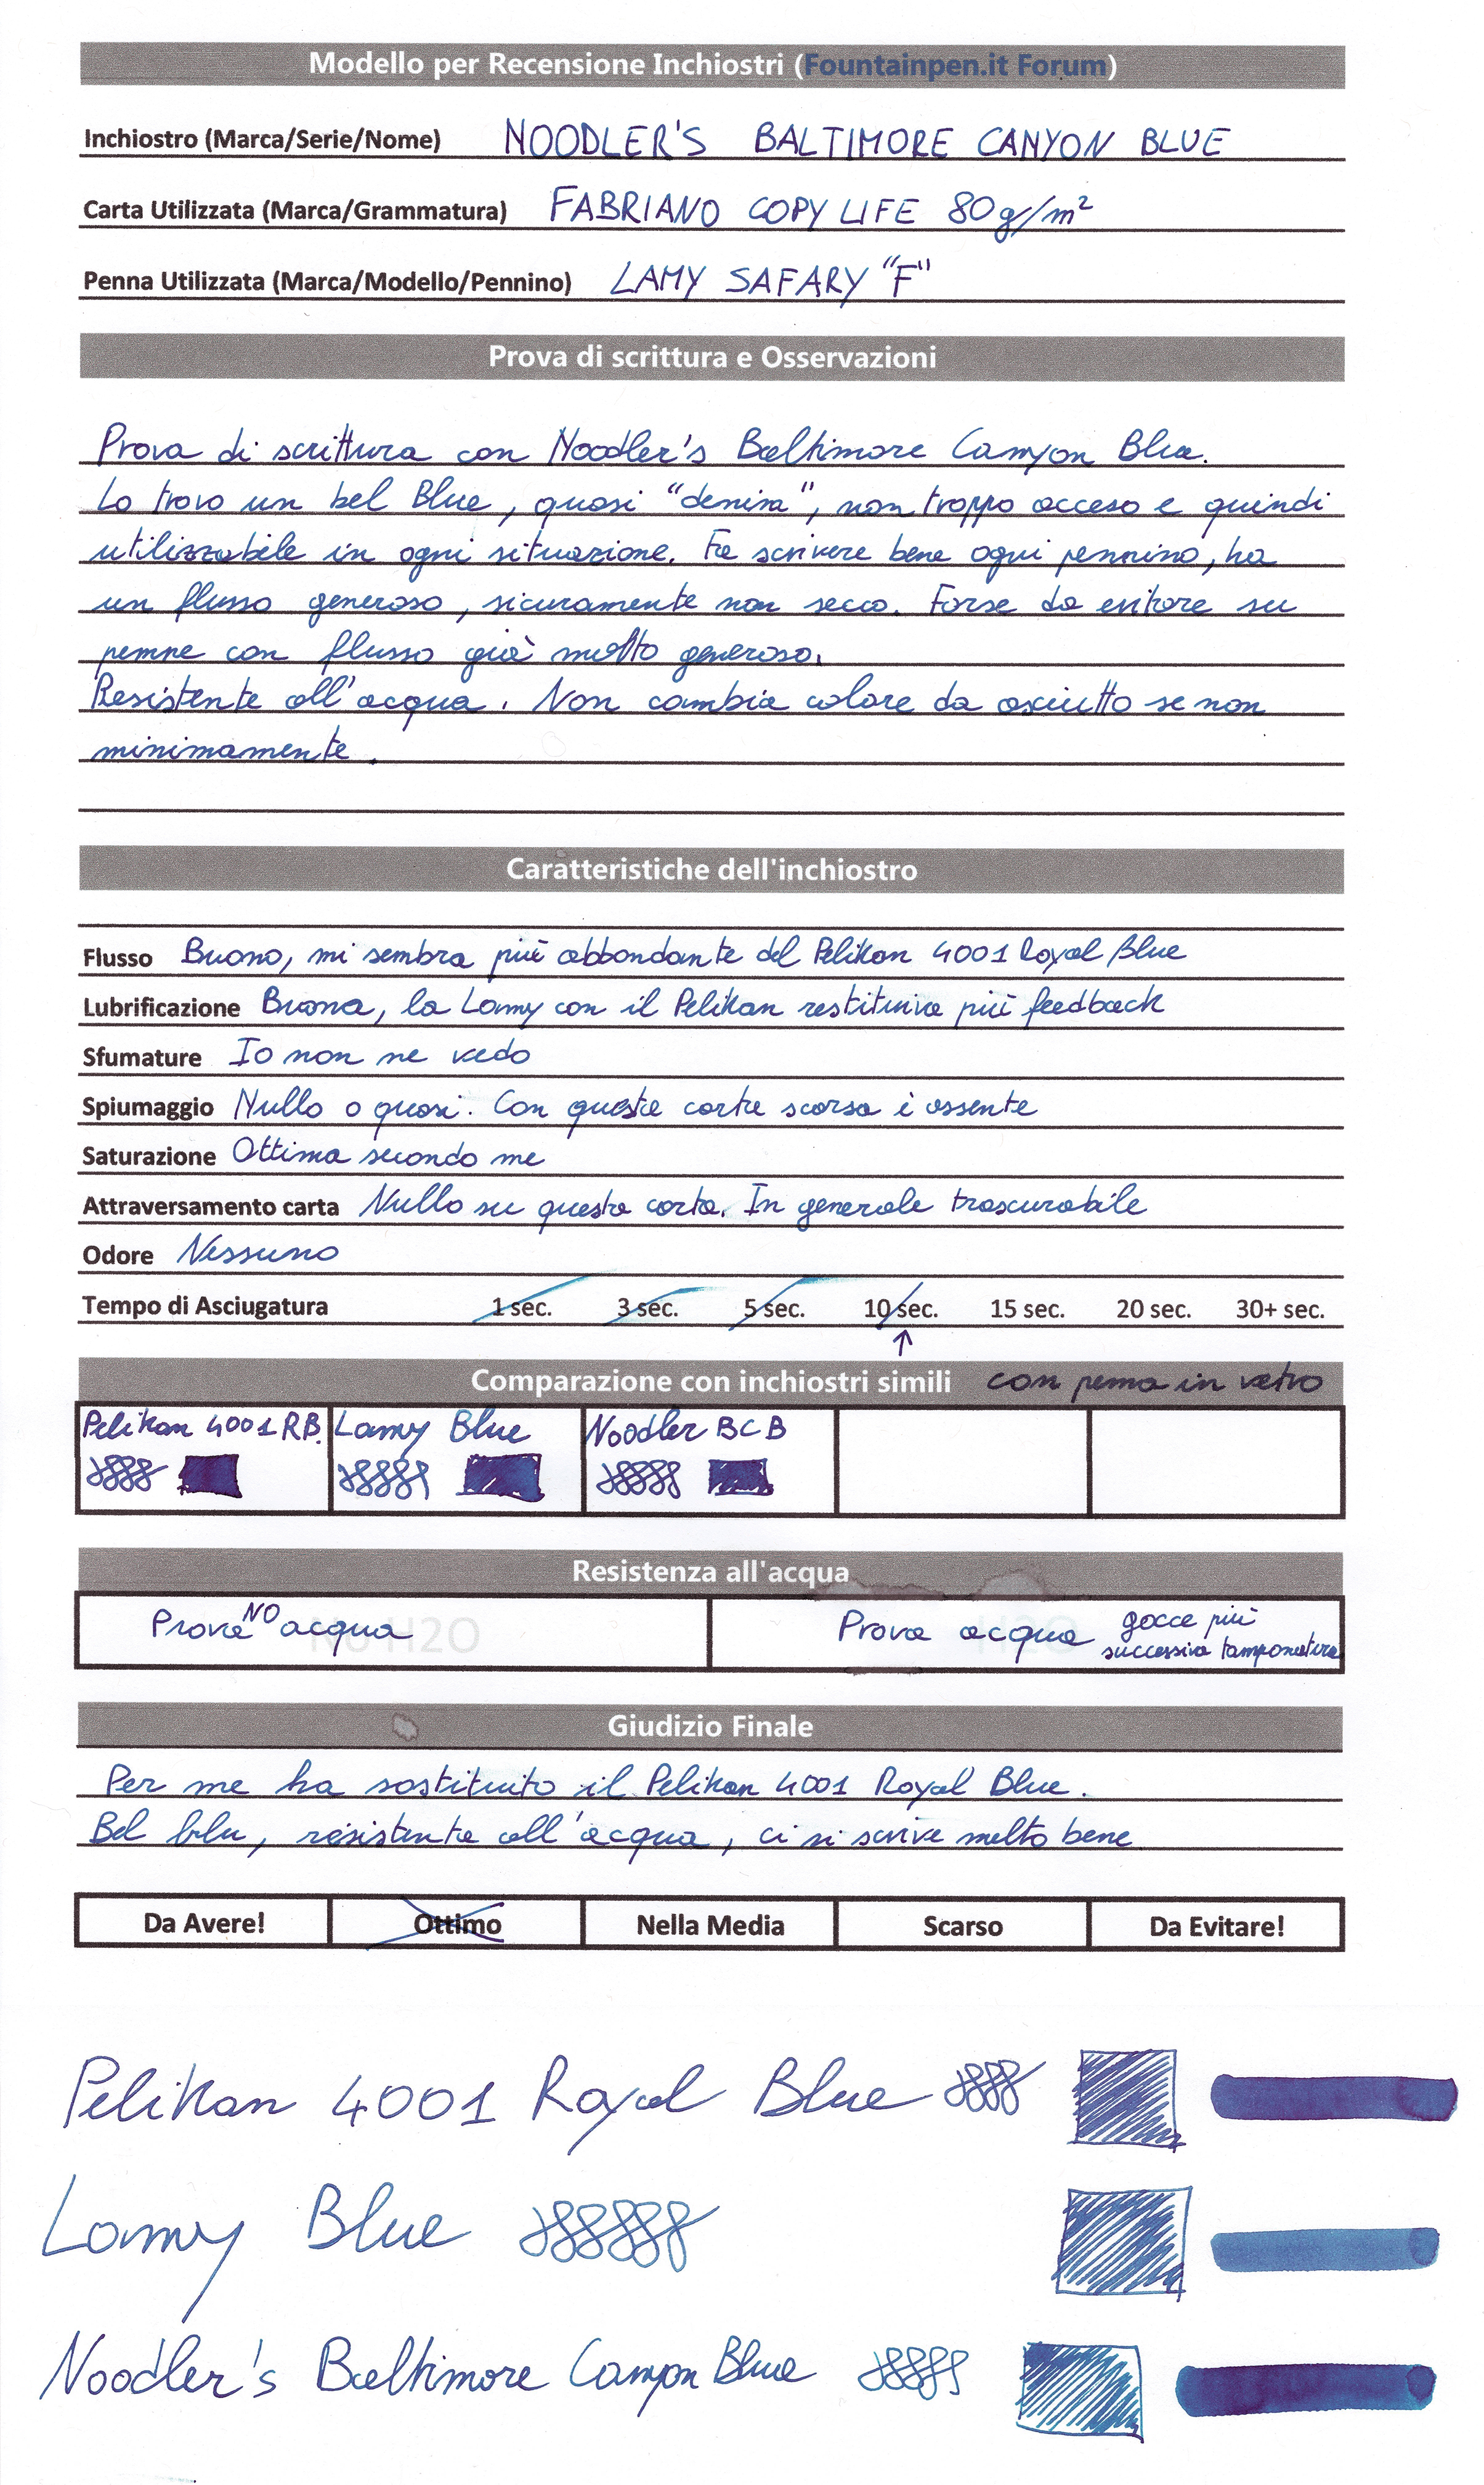 Modello per Recensione Inchiostri (Fountainpen.it Forum)
Inchiostro (Marca/Serie/Nome) NOODLER'S BALTIMORE CANYON BLUE
Carta Utilizzata (Marca/Grammatura) FABRIANO COPY LIFE 80g/m²
Penna Utilizzata (Marca/Modello/Pennino) LAMY SAFARY "F"
Prova di scrittura e Osservazioni
Prova di scrittura con Noodler's Baltimore Canyon Blue.
Lo trovo un bel Blue, quasi "denim", non troppo acceso e quindi
utilizzabile in ogni situazione. Fa scrivere bene ogni pennino, ha
un flusso generoso, sicuramente non secco. Forse da evitare su
penne con flusso già molto generoso.
Resistente all'acqua. Non cambia colore da asciutto se non
minimamente.
Caratteristiche dell'inchiostro
Flusso Buono, mi sembra più abbondante del Pelikan 4001 Royal Blue
Lubrificazione Buona, la Lamy con il Pelikan restituiva più feedback
Sfumature Io non ne vedo
Spiumaggio Nullo o quasi. Con questa carta scarsa è assente
Saturazione Ottima secondo me
Attraversamento carta Nullo su questa carta. In generale trascurabile
Odore Nessuno
Tempo di Asciugatura 1 sec. 3 sec. 5 sec. 10 sec. 15 sec. 20 sec. 30+ sec.
Comparazione con inchiostri simili con penna in vetro
Pelikan 4001 RB. Lamy Blue Noodler BCB
Resistenza all'acqua
Prova NO acqua No H2O Prova acqua H2O gocce più
successiva tamponatura
Giudizio Finale
Per me ha sostituito il Pelikan 4001 Royal Blue.
Bel blu, resistente all'acqua, ci si scrive molto bene
Da Avere! Ottimo Nella Media Scarso Da Evitare!
Pelikan 4001 Royal Blue
Lamy Blue
Noodler's Baltimore Canyon Blue